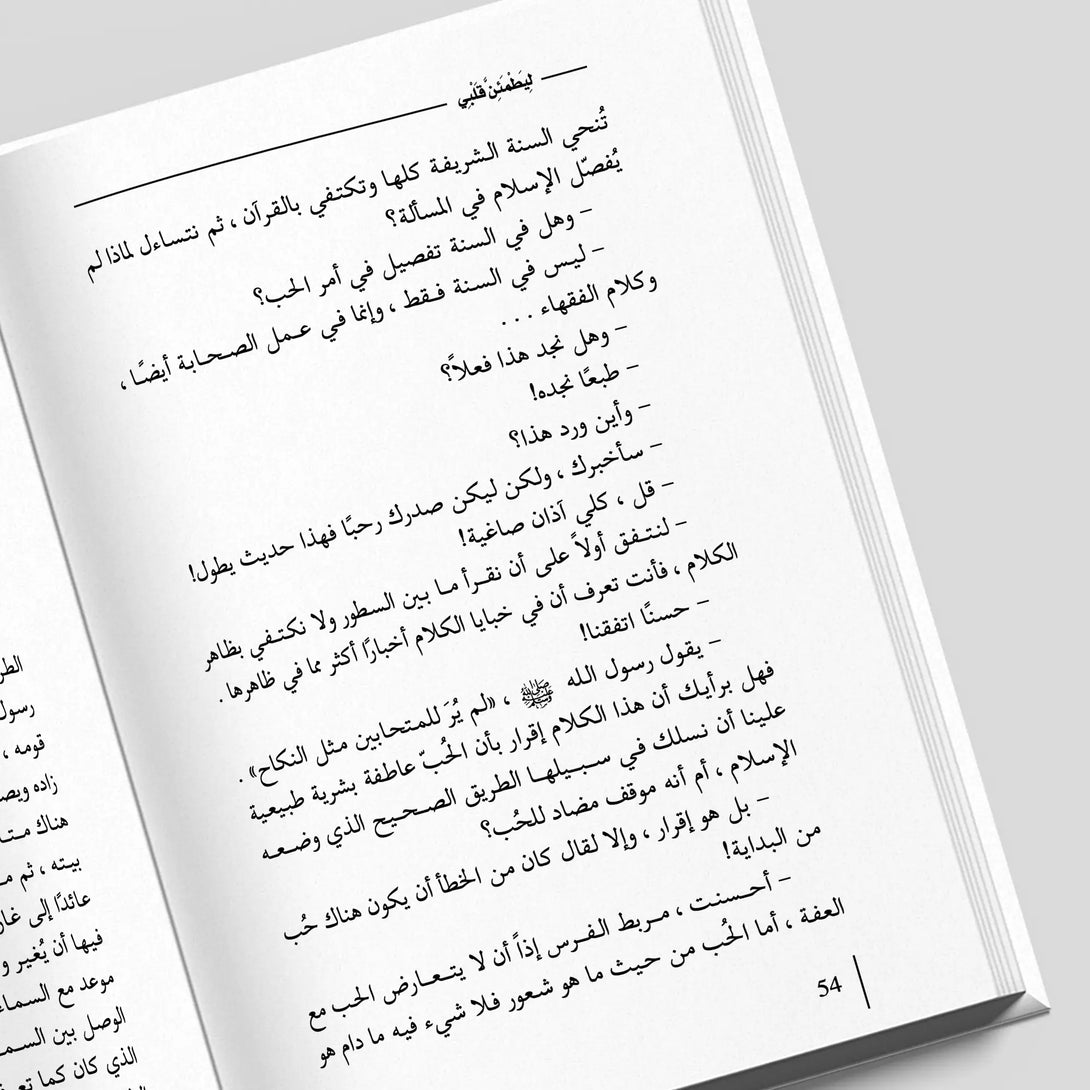 لِيَطْمَئِنَّ قَلْبِي
تُنحي السنة الشريفة كلها وتكتفي بالقرآن ، ثم نتساءل لماذا لم
يُفصّل الإسلام في المسألة؟
– وهل في السنة تفصيل في أمر الحب؟
– ليس في السنة فقط ، وإنما في عمل الصحابة أيضًا ،
وكلام الفقهاء . . .
– وهل نجد هذا فعلاً؟
– طبعًا نجده!
– وأين ورد هذا؟
– سأخبرك ، ولكن ليكن صدرك رحبًا فهذا حديث يطول!
– قل ، كلي آذان صاغية!
– لنتفق أولاً على أن نقرأ ما بين السطور ولا نكتفي بظاهر
الكلام ، فأنت تعرف أن في خبايا الكلام أخبارًا أكثر مما في ظاهرها .
– حسنًا اتفقنا!
– يقول رسول الله ﷺ ، «لم يُرَ للمتحابين مثل النكاح» .
فهل برأيك أن هذا الكلام إقرار بأن الحُبّ عاطفة بشرية طبيعية
علينا أن نسلك في سبيلها الطريق الصحيح الذي وضعه
الإسلام ، أم أنه موقف مضاد للحُب؟
– بل هو إقرار ، وإلا لقال كان من الخطأ أن يكون هناك حُب
من البداية!
– أحسنت ، مربط الفرس إذاً أن لا يتعارض الحب مع
العفة ، أما الحُب من حيث ما هو شعور فلا شيء فيه ما دام هو
54
رسول
قومه ،
زاده ويص
بيته ، ثم م
عائدًا إلى غار
فيها أن يُغير و
موعد مع السماء
الوصل بين السم
الذي كان كما تع